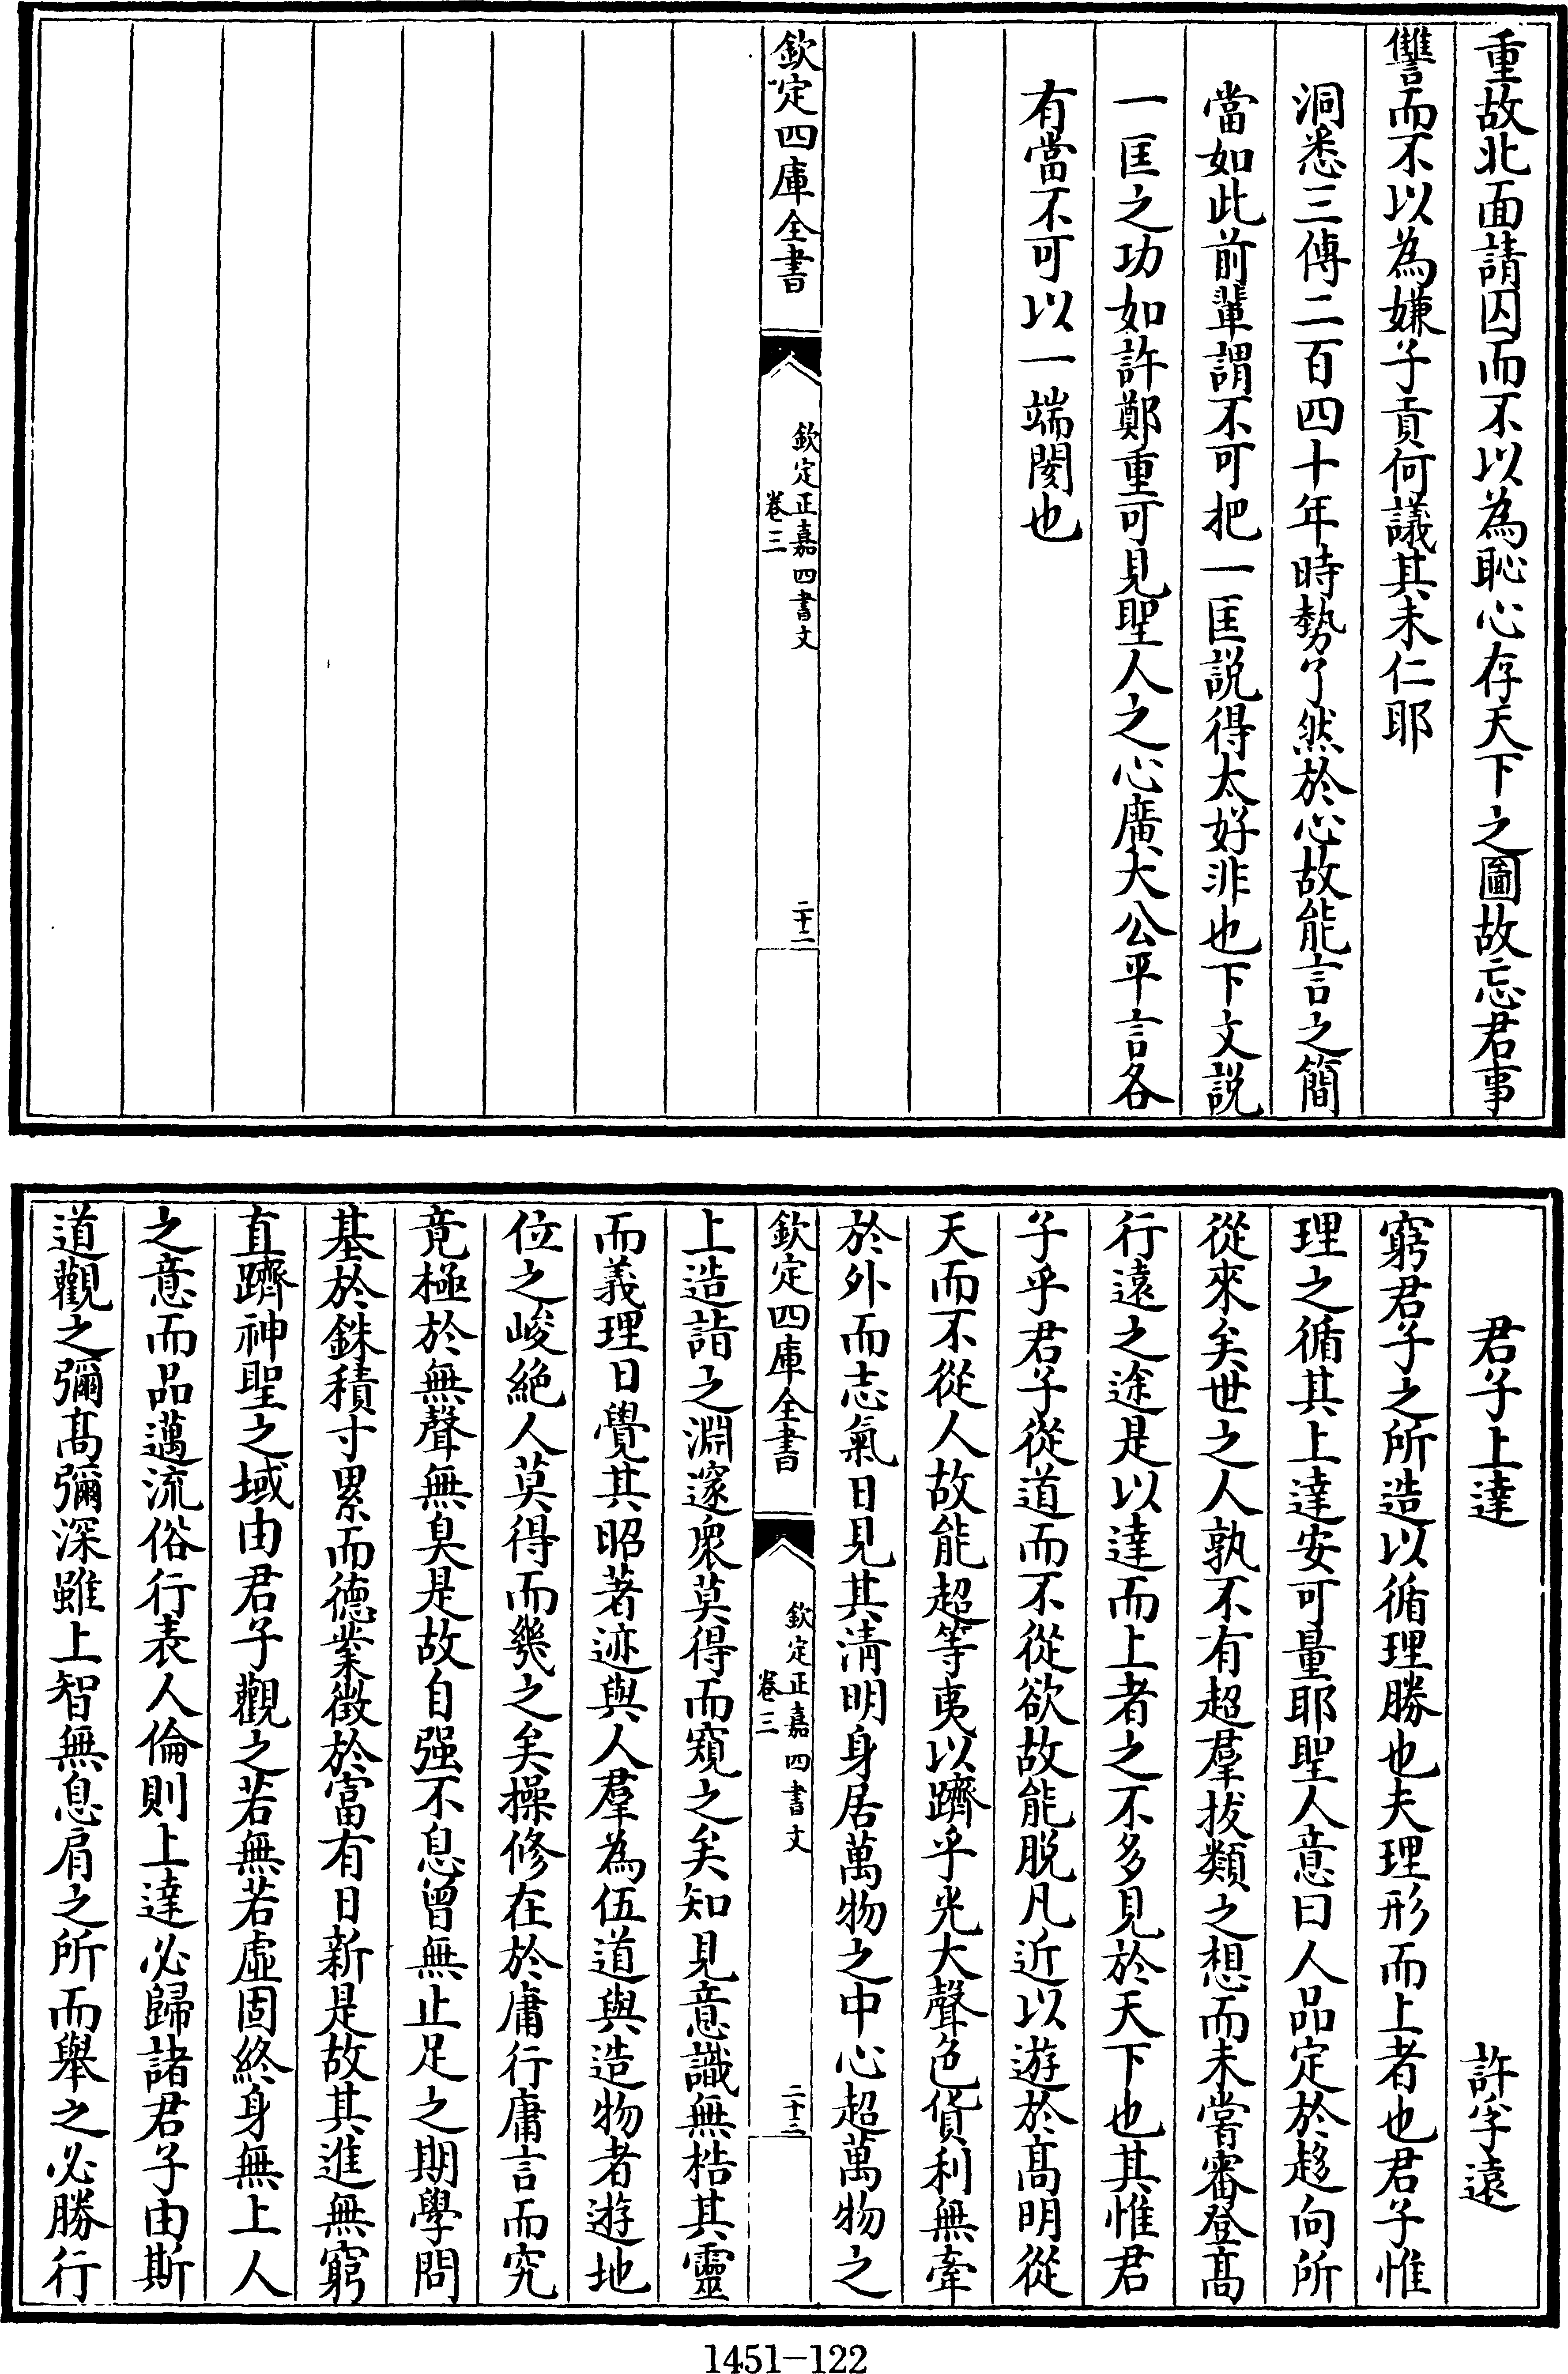 重故北面請囚而不以為恥心存天下之圖故忘君事
讐而不以為嫌子貢何議其未仁耶
洞悉三傳二百四十年時勢了然於心故能言之簡
當如此前輩謂不可把一匡說得太好非也下文說
一匡之功如許鄭重可見聖人之心廣大公平言各
有當不可以一端閡也
欽定四庫全書
欽定正嘉四書文
卷三
二十二
君子上達
許孚遠
窮君子之所造以循理勝也夫理形而上者也君子惟
理之循其上達安可量耶聖人意曰人品定於趍向所
從來矣世之人孰不有超羣拔類之想而未嘗審登髙
行遠之途是以達而上者之不多見於天下也其惟君
子乎君子從道而不從欲故能脱凡近以遊於髙明從
天而不從人故能超等夷以躋乎光大聲色貨利無牽
於外而志氣日見其清明身居萬物之中心超萬物之
欽定四庫全書
欽定正嘉四書文
卷三
二十三
上造詣之淵邃衆莫得而窺之矣知見意識無梏其靈
而義理日覺其昭著迹與人羣為伍道與造物者遊地
位之峻絶人莫得而幾之矣操修在於庸行庸言而究
竟極於無聲無臭是故自强不息曾無止足之期學問
基於銖積寸累而德業徴於富有日新是故其進無窮
直躋神聖之域由君子觀之若無若虛固終身無上人
之意而品邁流俗行表人倫則上達必歸諸君子由斯
道觀之彌髙彌深雖上智無息肩之所而舉之必勝行
1451-122